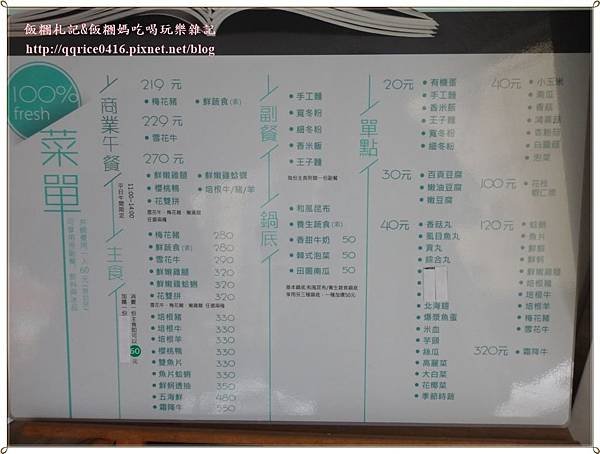 飯糰札記&飯糰媽吃喝玩樂雜記
http://qqrice0416.pixnet.net/blog
100%
fresh
菜單
商業午餐
11:00~14:00
平日午間限定
219 元
梅花豬
鮮蔬食(素)
229 元
雪花牛
270 元
鮮嫩雞腿
鮮嫩雞蛤蠣
櫻桃鴨
培根牛/豬/羊
花雙拼
主食
梅花豬 280
鮮蔬食(素) 280
雪花牛 290
鮮嫩雞腿 320
鮮嫩雞蛤蜊 320
花雙拼 320
雪花牛、梅花豬、嫩雞腿 任選兩種
培根豬 330
培根牛 330
培根羊 330
櫻桃鴨 330
雙魚片 330
魚片蛤蜊 350
鮮蚵透抽 350
五海鮮 480
霜降牛 550
副餐
手工麵
寬冬粉
細冬粉
香米飯
王子麵
每份主食附餐一份副餐
鍋底
和風昆布
養生蔬食(素)
香甜牛奶 50
韓式泡菜 50
田園南瓜 50
單點
20元
有機蛋
手工麵
香米飯
王子麵
寬冬粉
細冬粉
30元
百頁豆腐
嫩油豆腐
嫩豆腐
40元
香菇丸
虱目魚丸
貢丸
綜合丸
北海翅
爆漿魚蛋
米血
芋頭
絲瓜
高麗菜
大白菜
花椰菜
季節時蔬
40元
小玉米
南瓜
香菇
鴻喜菇
杏鮑菇
白蘿蔔
泡菜
100元
花枝
蝦仁漿
120元
蛤蜊
魚片
鮮蝦
鮮蚵
鮮嫩雞腿
培根豬
培根牛
培根羊
梅花豬
雪花牛
320元
霜降牛